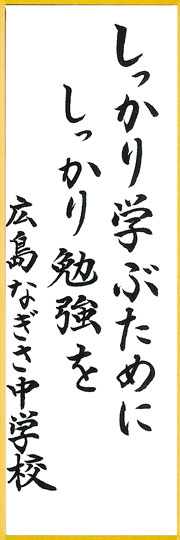 しっかり学ぶために
しっかり勉強を
広島なぎさ中学校